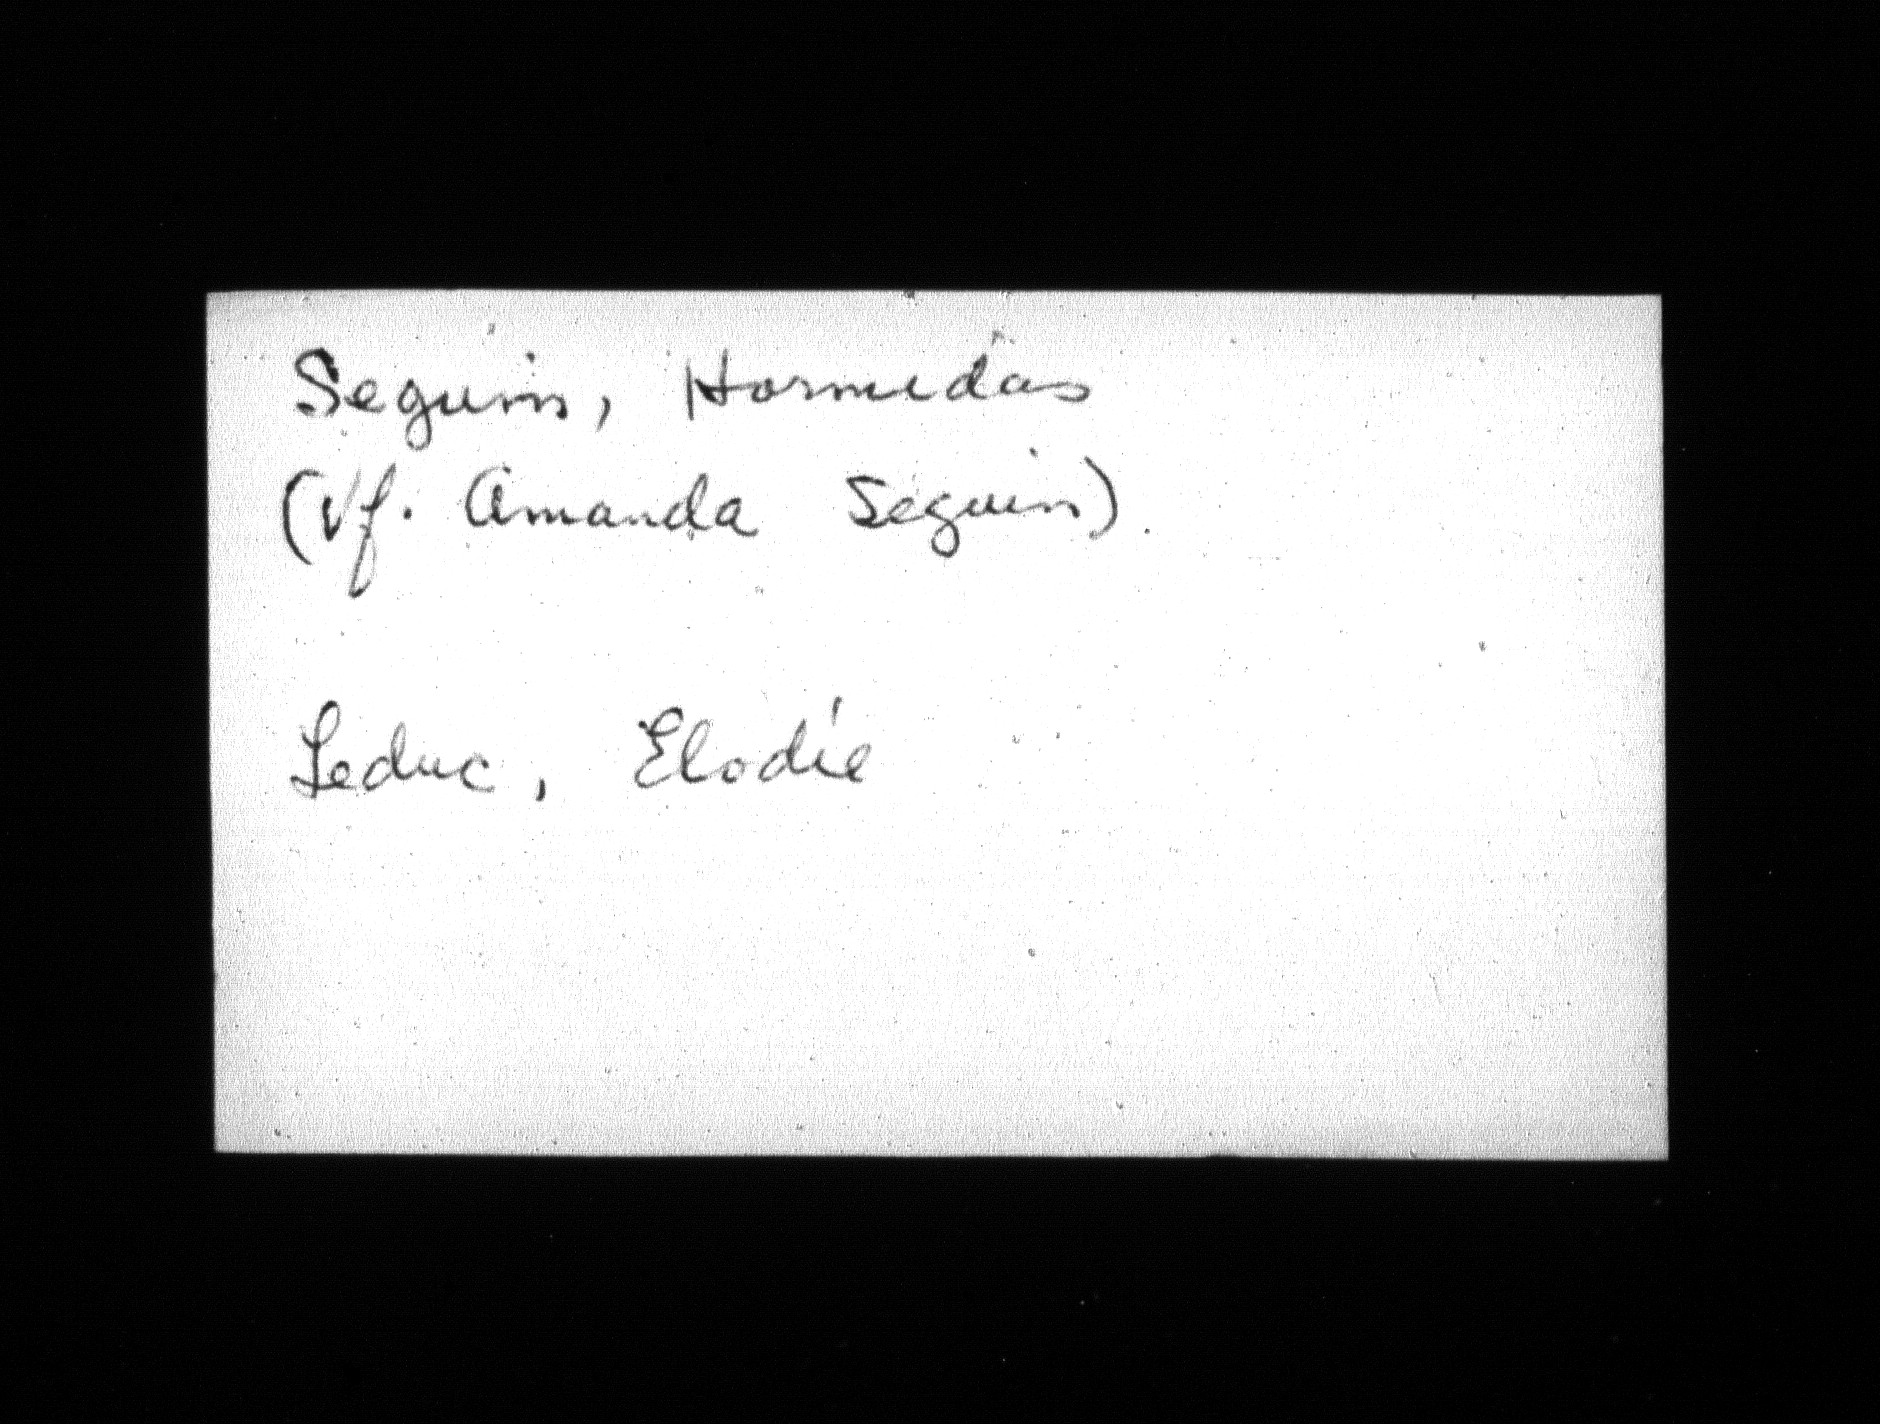 Seguin, Hormidas
(Vf. Amanda Seguin).
Leduc, Elodie